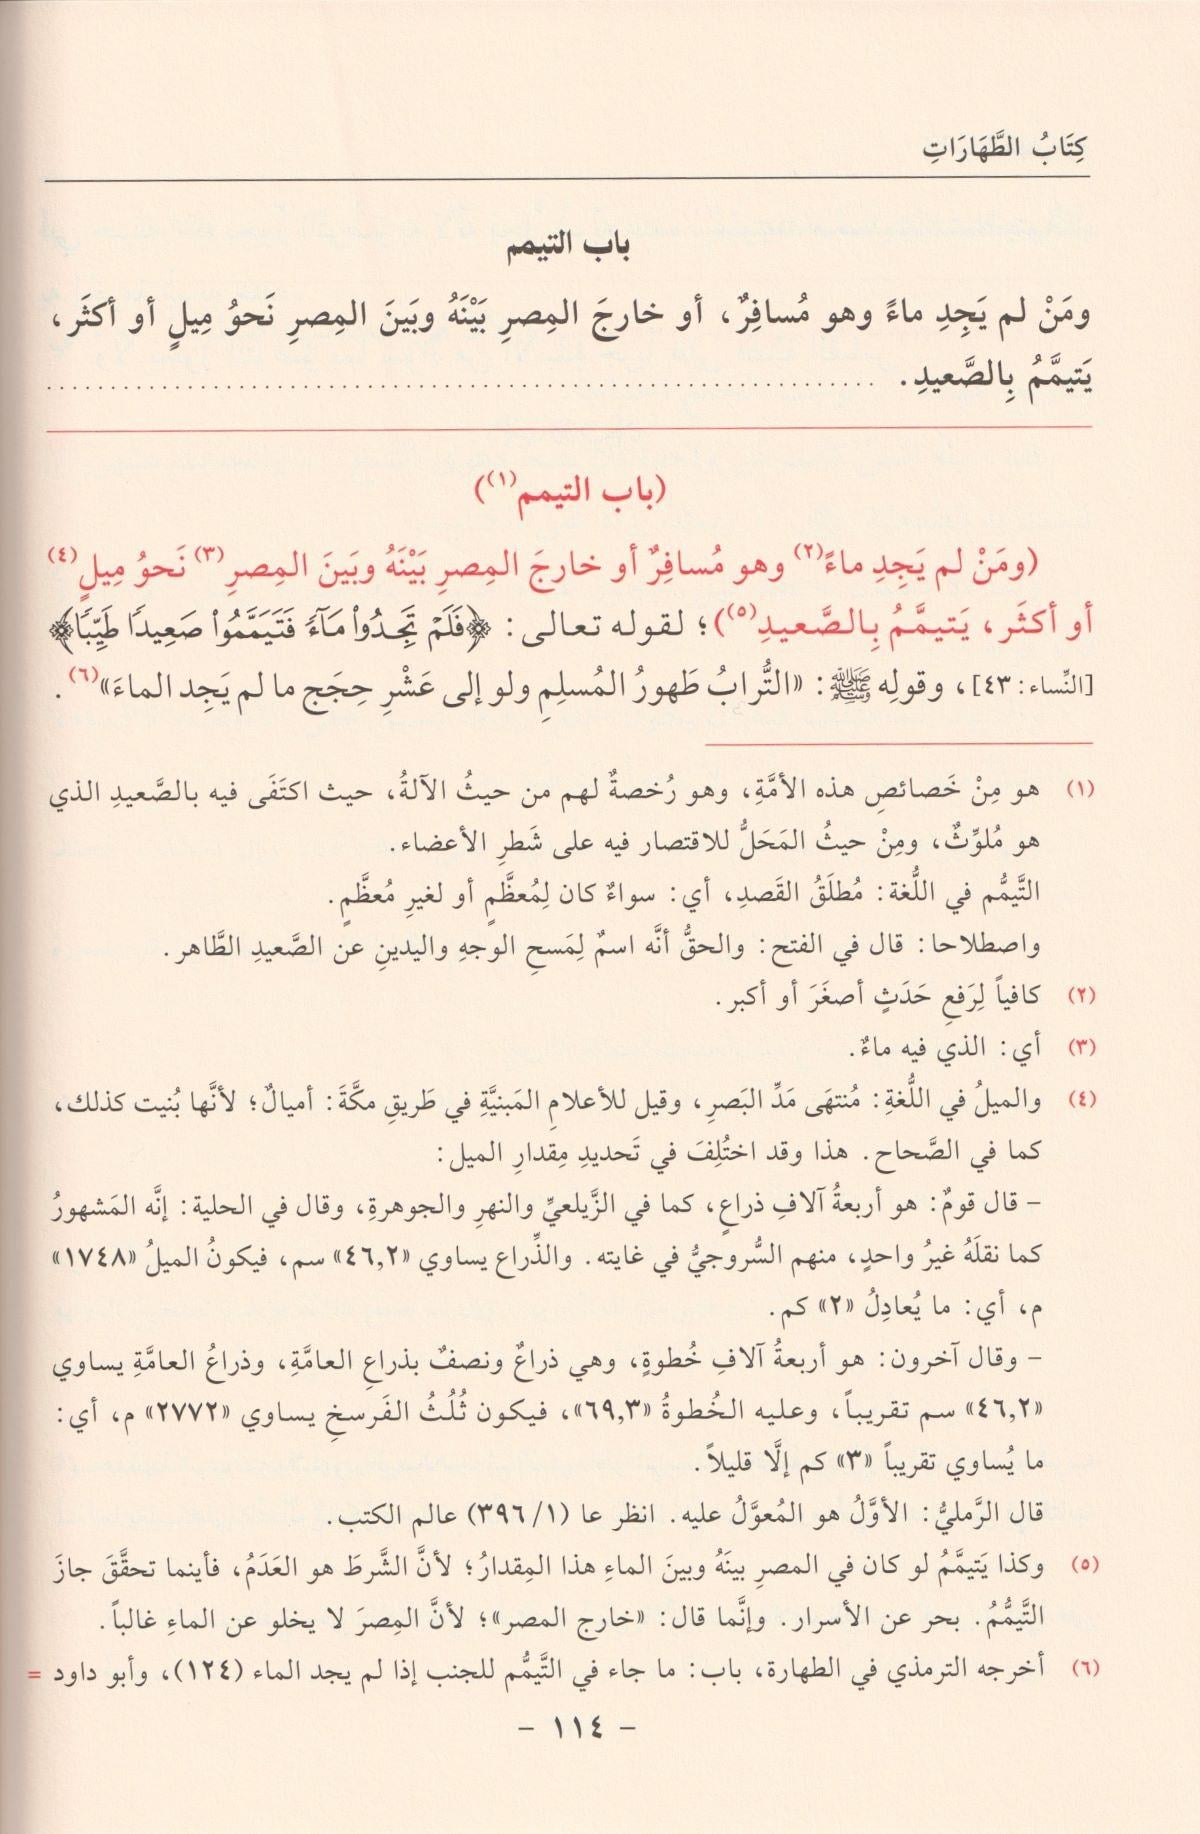 كِتَابُ الطَّهَارَاتِ
باب التيمم
ومَنْ لم يَجِدِ ماءً وهو مُسافِرٌ، أو خارجَ المِصرِ بَيْنَهُ وبَينَ المِصرِ نَحوُ مِيلٍ أو أكثَر،
يَتيمَّمُ بِالصَّعيدِ. ........................................
(باب التيمم(١))
(ومَنْ لم يَجِدِ ماءً(٢) وهو مُسافِرٌ أو خارجَ المِصرِ بَيْنَهُ وبَينَ المِصرِ(٣) نَحوُ مِيلٍ(٤)
أو أكثَر، يَتيمَّمُ بِالصَّعيدِ(٥))؛ لقوله تعالى: ﴿فَلَمْ تَجِدُواْ مَآءً فَتَيَمَّمُواْ صَعِيدًا طَيِّبًا﴾
[النِّساء: ٤٣]، وقولِه ﷺ: «التُّرابُ طَهورُ المُسلِمِ ولو إلى عَشْرِ حِجَجٍ ما لم يَجِد الماءَ»(٦).
(١) هو مِنْ خَصائصِ هذه الأمَّةِ، وهو رُخصةٌ لهم من حيثُ الآلةُ، حيث اكتَفَى فيه بالصَّعيدِ الذي
هو مُلوِّثٌ، ومِنْ حيثُ المَحَلُّ للاقتصار فيه على شَطرِ الأعضاء.
التَّيمُّم في اللُّغة: مُطلَقُ القَصدِ، أي: سواءٌ كان لِمُعظَّمٍ أو لغيرِ مُعظَّمٍ.
واصطلاحا: قال في الفتح: والحقُّ أنَّه اسمٌ لِمَسحِ الوجهِ واليدينِ عن الصَّعيدِ الطَّاهر.
(٢) كافياً لِرَفعِ حَدَثٍ أصغَرَ أو أكبر.
(٣) أي: الذي فيه ماءٌ.
(٤) والميلُ في اللُّغةِ: مُنتهَى مَدِّ البَصرِ، وقيل للأعلامِ المَبنيَّةِ في طَريقِ مكَّةَ: أميالٌ؛ لأنَّها بُنيت كذلك،
كما في الصَّحاح. هذا وقد اختُلِفَ في تَحديدِ مِقدارِ الميل:
- قال قومٌ: هو أربعةُ آلافِ ذراعٍ، كما في الزَّيلعيِّ والنهرِ والجوهرةِ، وقال في الحلية: إنَّه المَشهورُ
كما نقلَهُ غيرُ واحدٍ، منهم السُّروجيُّ في غايته. والذِّراع يساوي «٤٦,٢» سم، فيكونُ الميلُ «١٧٤٨»
م، أي: ما يُعادِلُ «٢» كم.
- وقال آخرون: هو أربعةُ آلافِ خُطوةٍ، وهي ذراعٌ ونصفٌ بذراعِ العامَّةِ، وذراعُ العامَّةِ يساوي
«٤٦,٢» سم تقريباً، وعليه الخُطوةُ «٦٩,٣»، فيكون ثُلُثُ الفَرسخِ يساوي «٢٧٧٢» م، أي:
ما يُساوي تقريباً «٣» كم إلَّا قليلاً.
قال الرَّمليُّ: الأوَّلُ هو المُعوَّلُ عليه. انظر عا (١/ ٣٩٦) عالم الكتب.
(٥) وكذا يَتيمَّمُ لو كان في المصرِ بينَهُ وبينَ الماءِ هذا المِقدارُ؛ لأنَّ الشَّرطَ هو العَدَمُ، فأينما تحقَّقَ جازَ
التَّيمُّمُ. بحر عن الأسرار. وإنَّما قال: «خارج المصر»؛ لأنَّ المِصرَ لا يخلو عن الماءِ غالباً.
(٦) أخرجه الترمذي في الطهارة، باب: ما جاء في التَّيمُّم للجنب إذا لم يجد الماء (١٢٤)، وأبو داود =
- ١١٤ -